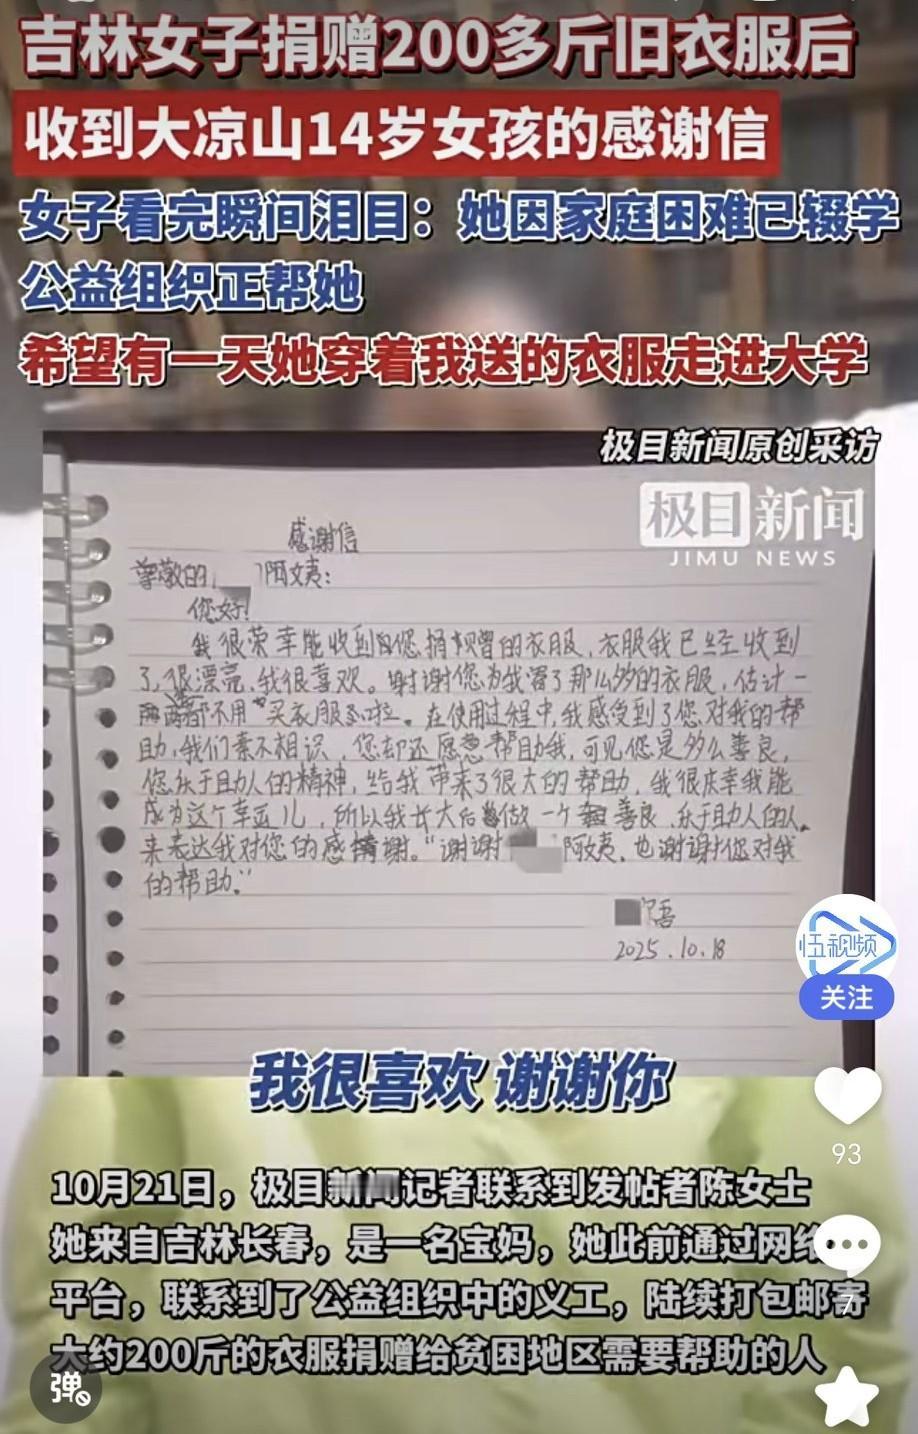 吉林女子捐赠200多斤旧衣服后
收到大凉山14岁女孩的感谢信
女子看完瞬间泪目：她因家庭困难已辍学
公益组织正帮她
希望有一天她穿着我送的衣服走进大学
极目新闻原创采访
极目新闻
JIMU NEWS
感谢信
尊敬的 阿姨：
您好！
我很荣幸能收到自您捐赠的衣服，衣服我已经收到
了，很漂亮，我很喜欢。谢谢您为我寄了那么多的衣服，估计一
两年都不用买衣服啦。在使用过程中，我感受到了您对我的帮
助，我们素不相识，您却还愿意帮助我，可见您是多么善良，
您乐于助人的精神，给我带来了很大的帮助，我很庆幸我能
成为这个幸运儿，所以我长大后做一个善良，乐于助人的人，
来表达我对您的感谢。“谢谢 阿姨，也谢谢您对我
的帮助。”
语
2025.10.18
伍视频
关注
我很喜欢 谢谢你
93
10月21日，极目新闻记者联系到发帖者陈女士
她来自吉林长春，是一名宝妈，她此前通过网络
平台，联系到了公益组织中的义工，陆续打包邮寄
7
大约200斤的衣服捐赠给贫困地区需要帮助的人
弹